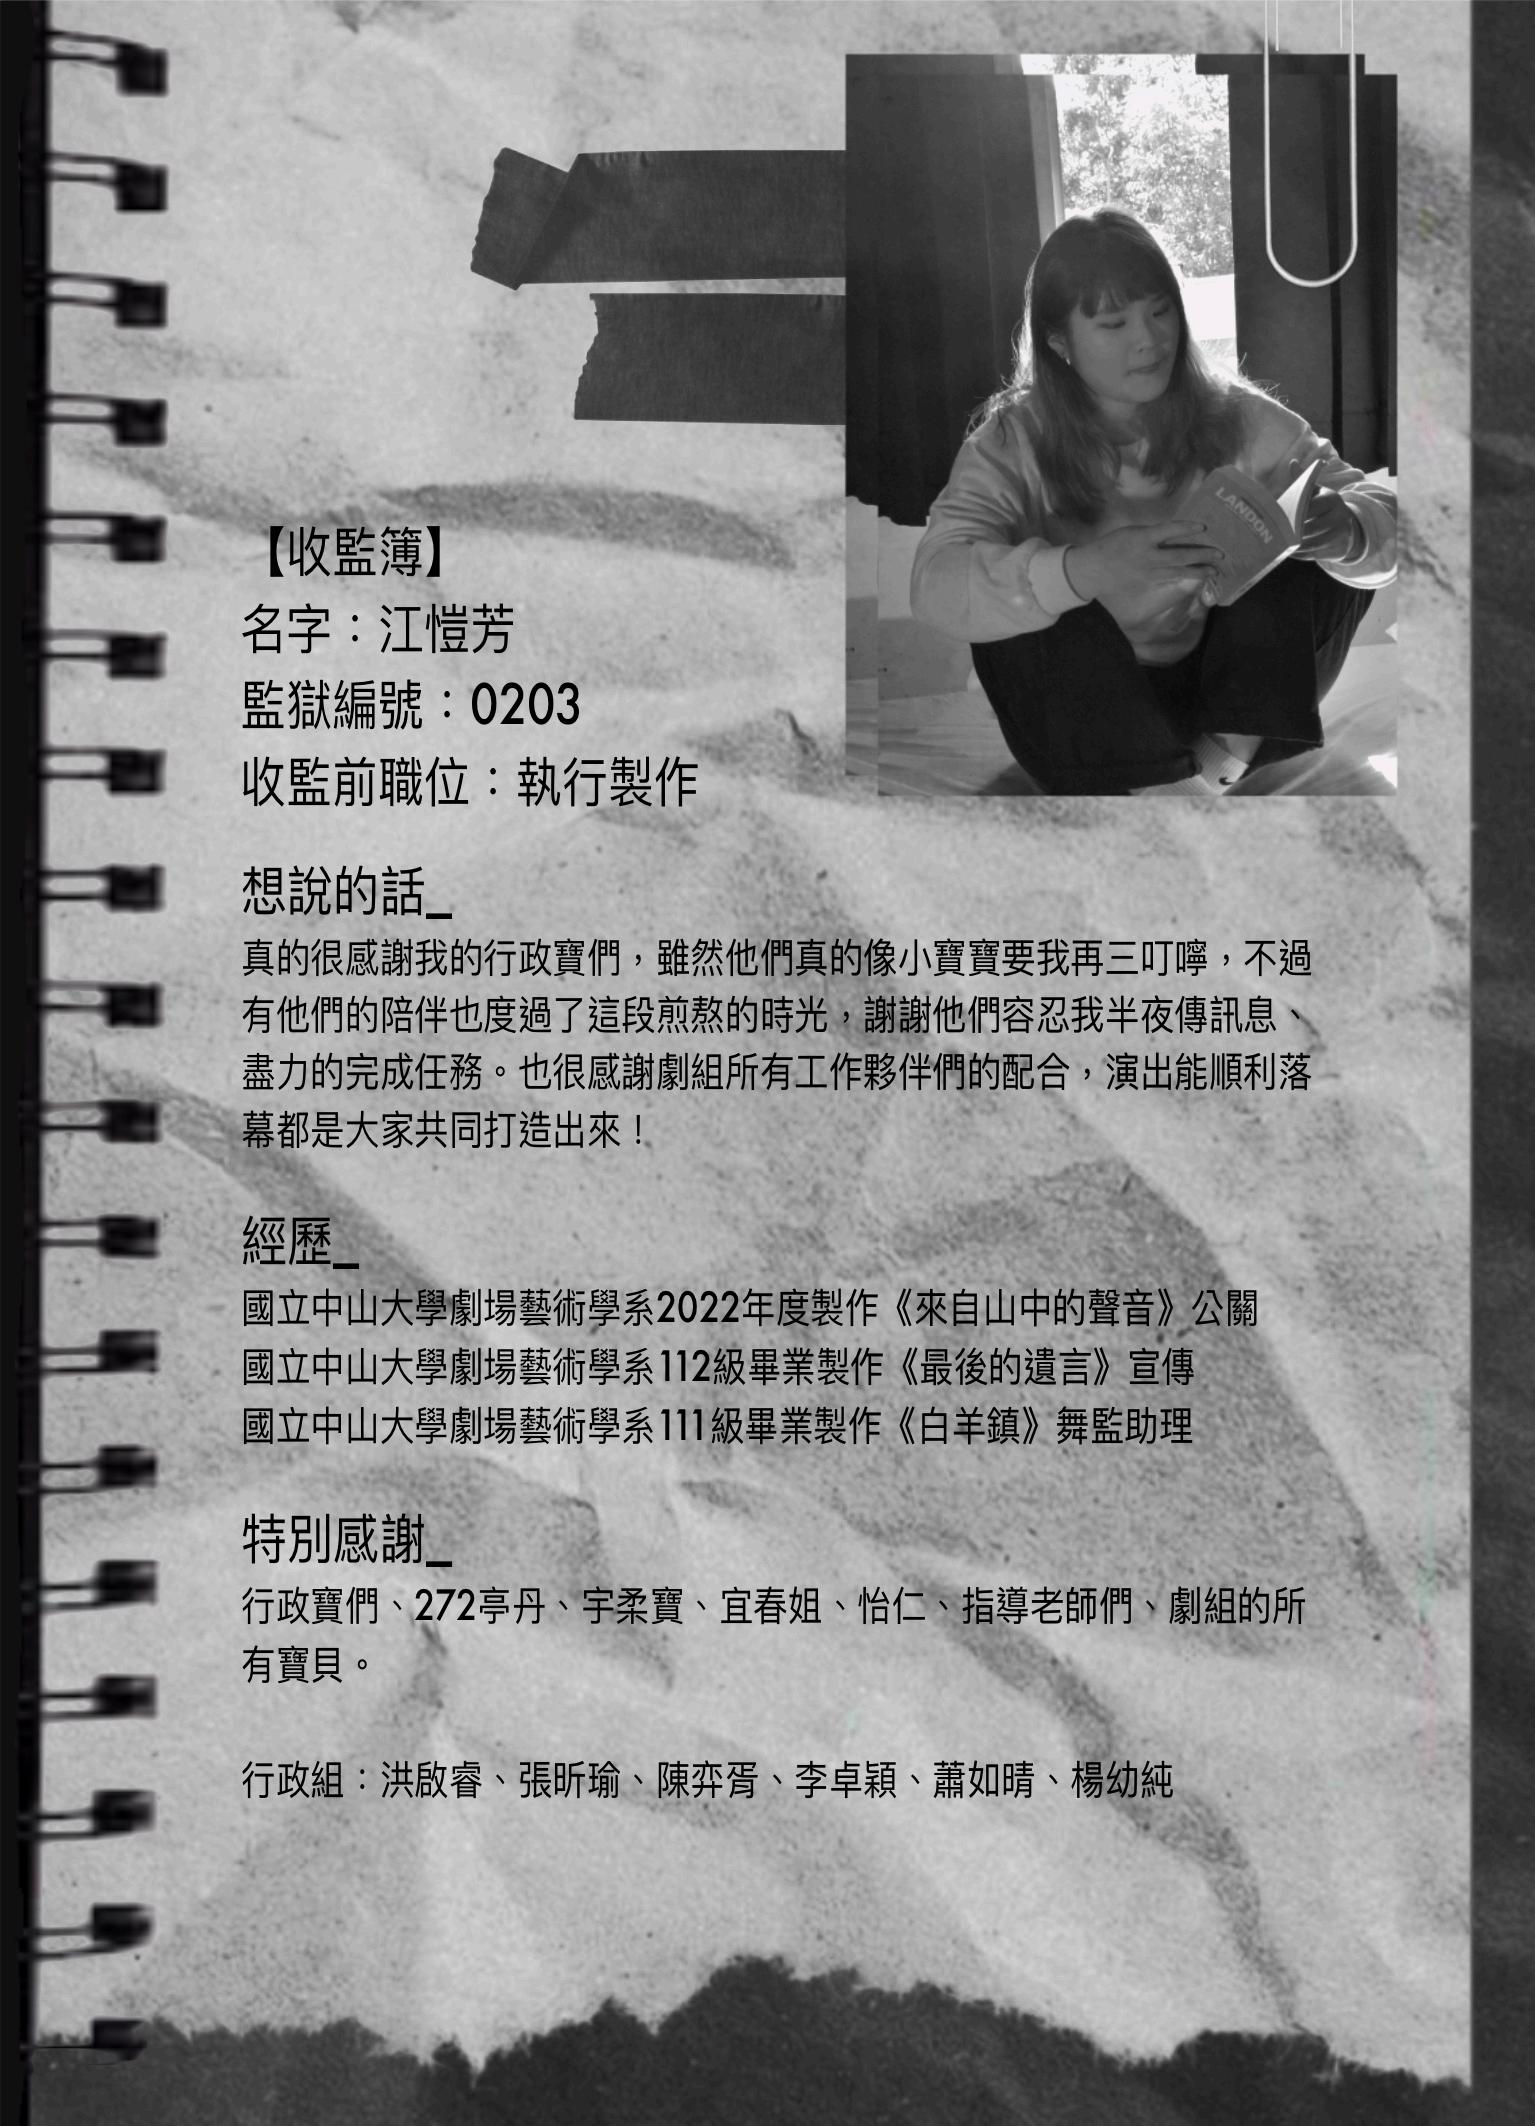 LANDON
【收監簿】
名字：江愷芳
監獄編號：0203
收監前職位：執行製作
想說的話_
真的很感謝我的行政寶們，雖然他們真的像小寶寶要我再三叮嚀，不過
有他們的陪伴也度過了這段煎熬的時光，謝謝他們容忍我半夜傳訊息、
盡力的完成任務。也很感謝劇組所有工作夥伴們的配合，演出能順利落
幕都是大家共同打造出來！
經歷_
國立中山大學劇場藝術學系2022年度製作《來自山中的聲音》公關
國立中山大學劇場藝術學系112級畢業製作《最後的遺言》宣傳
國立中山大學劇場藝術學系111級畢業製作《白羊鎮》舞監助理
特別感謝_
行政寶們、272亭丹、宇柔寶、宜春姐、怡仁、指導老師們、劇組的所
有寶貝。
行政組：洪啟睿、張昕瑜、陳弈胥、李卓穎、蕭如晴、楊幼純